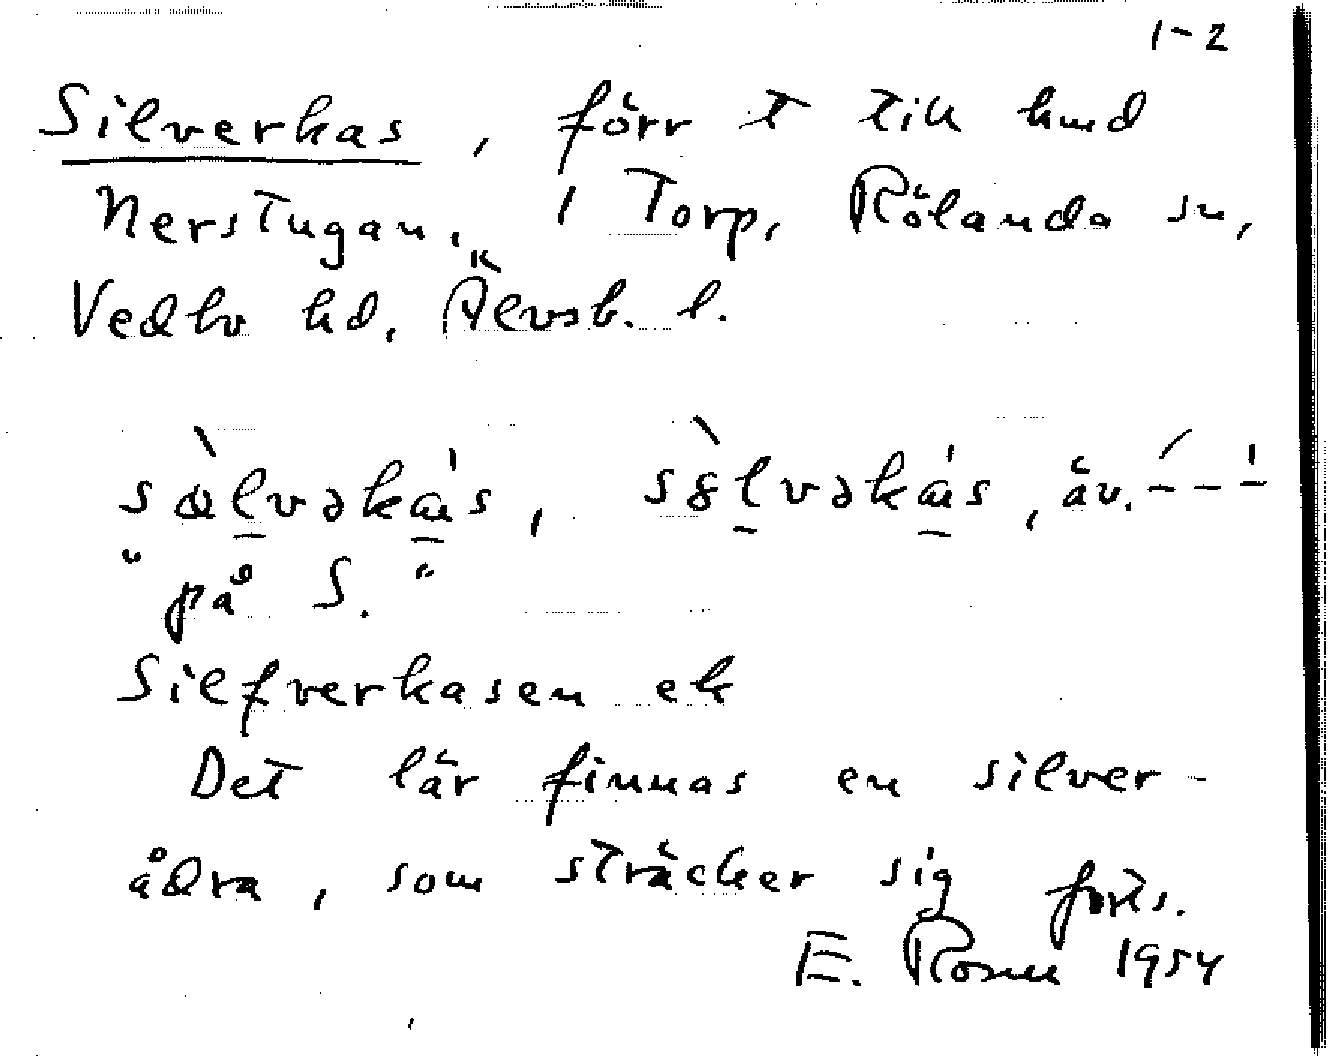 1-2
Silverkas, förr t till hmd
Nerstugan, 1 Torp, Rölanda sn,
Vedbo hd, Älvsb. l.
sɑ̀lvəkɑ́s, sòlvəkɑ́s, äv. ´---̍
"på S."
Silfverkasen ek
Det lär finnas en silver-
ådra, som sträcker sig forts.
E. Rosell 1954